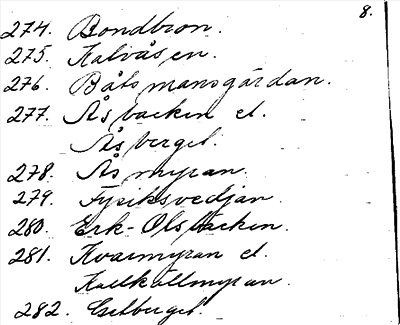 8.
274. Bondbron.
275. Kalvåsen.
276. Båtsmansgärdan.
277. Åsbacken el.
Åsberget.
278. Åsmyran.
279. Fysiksvedjan.
280. Erk-Olsbacken.
281. Kvarnmyran el.
Kallkällmyran.
282. Getberget.